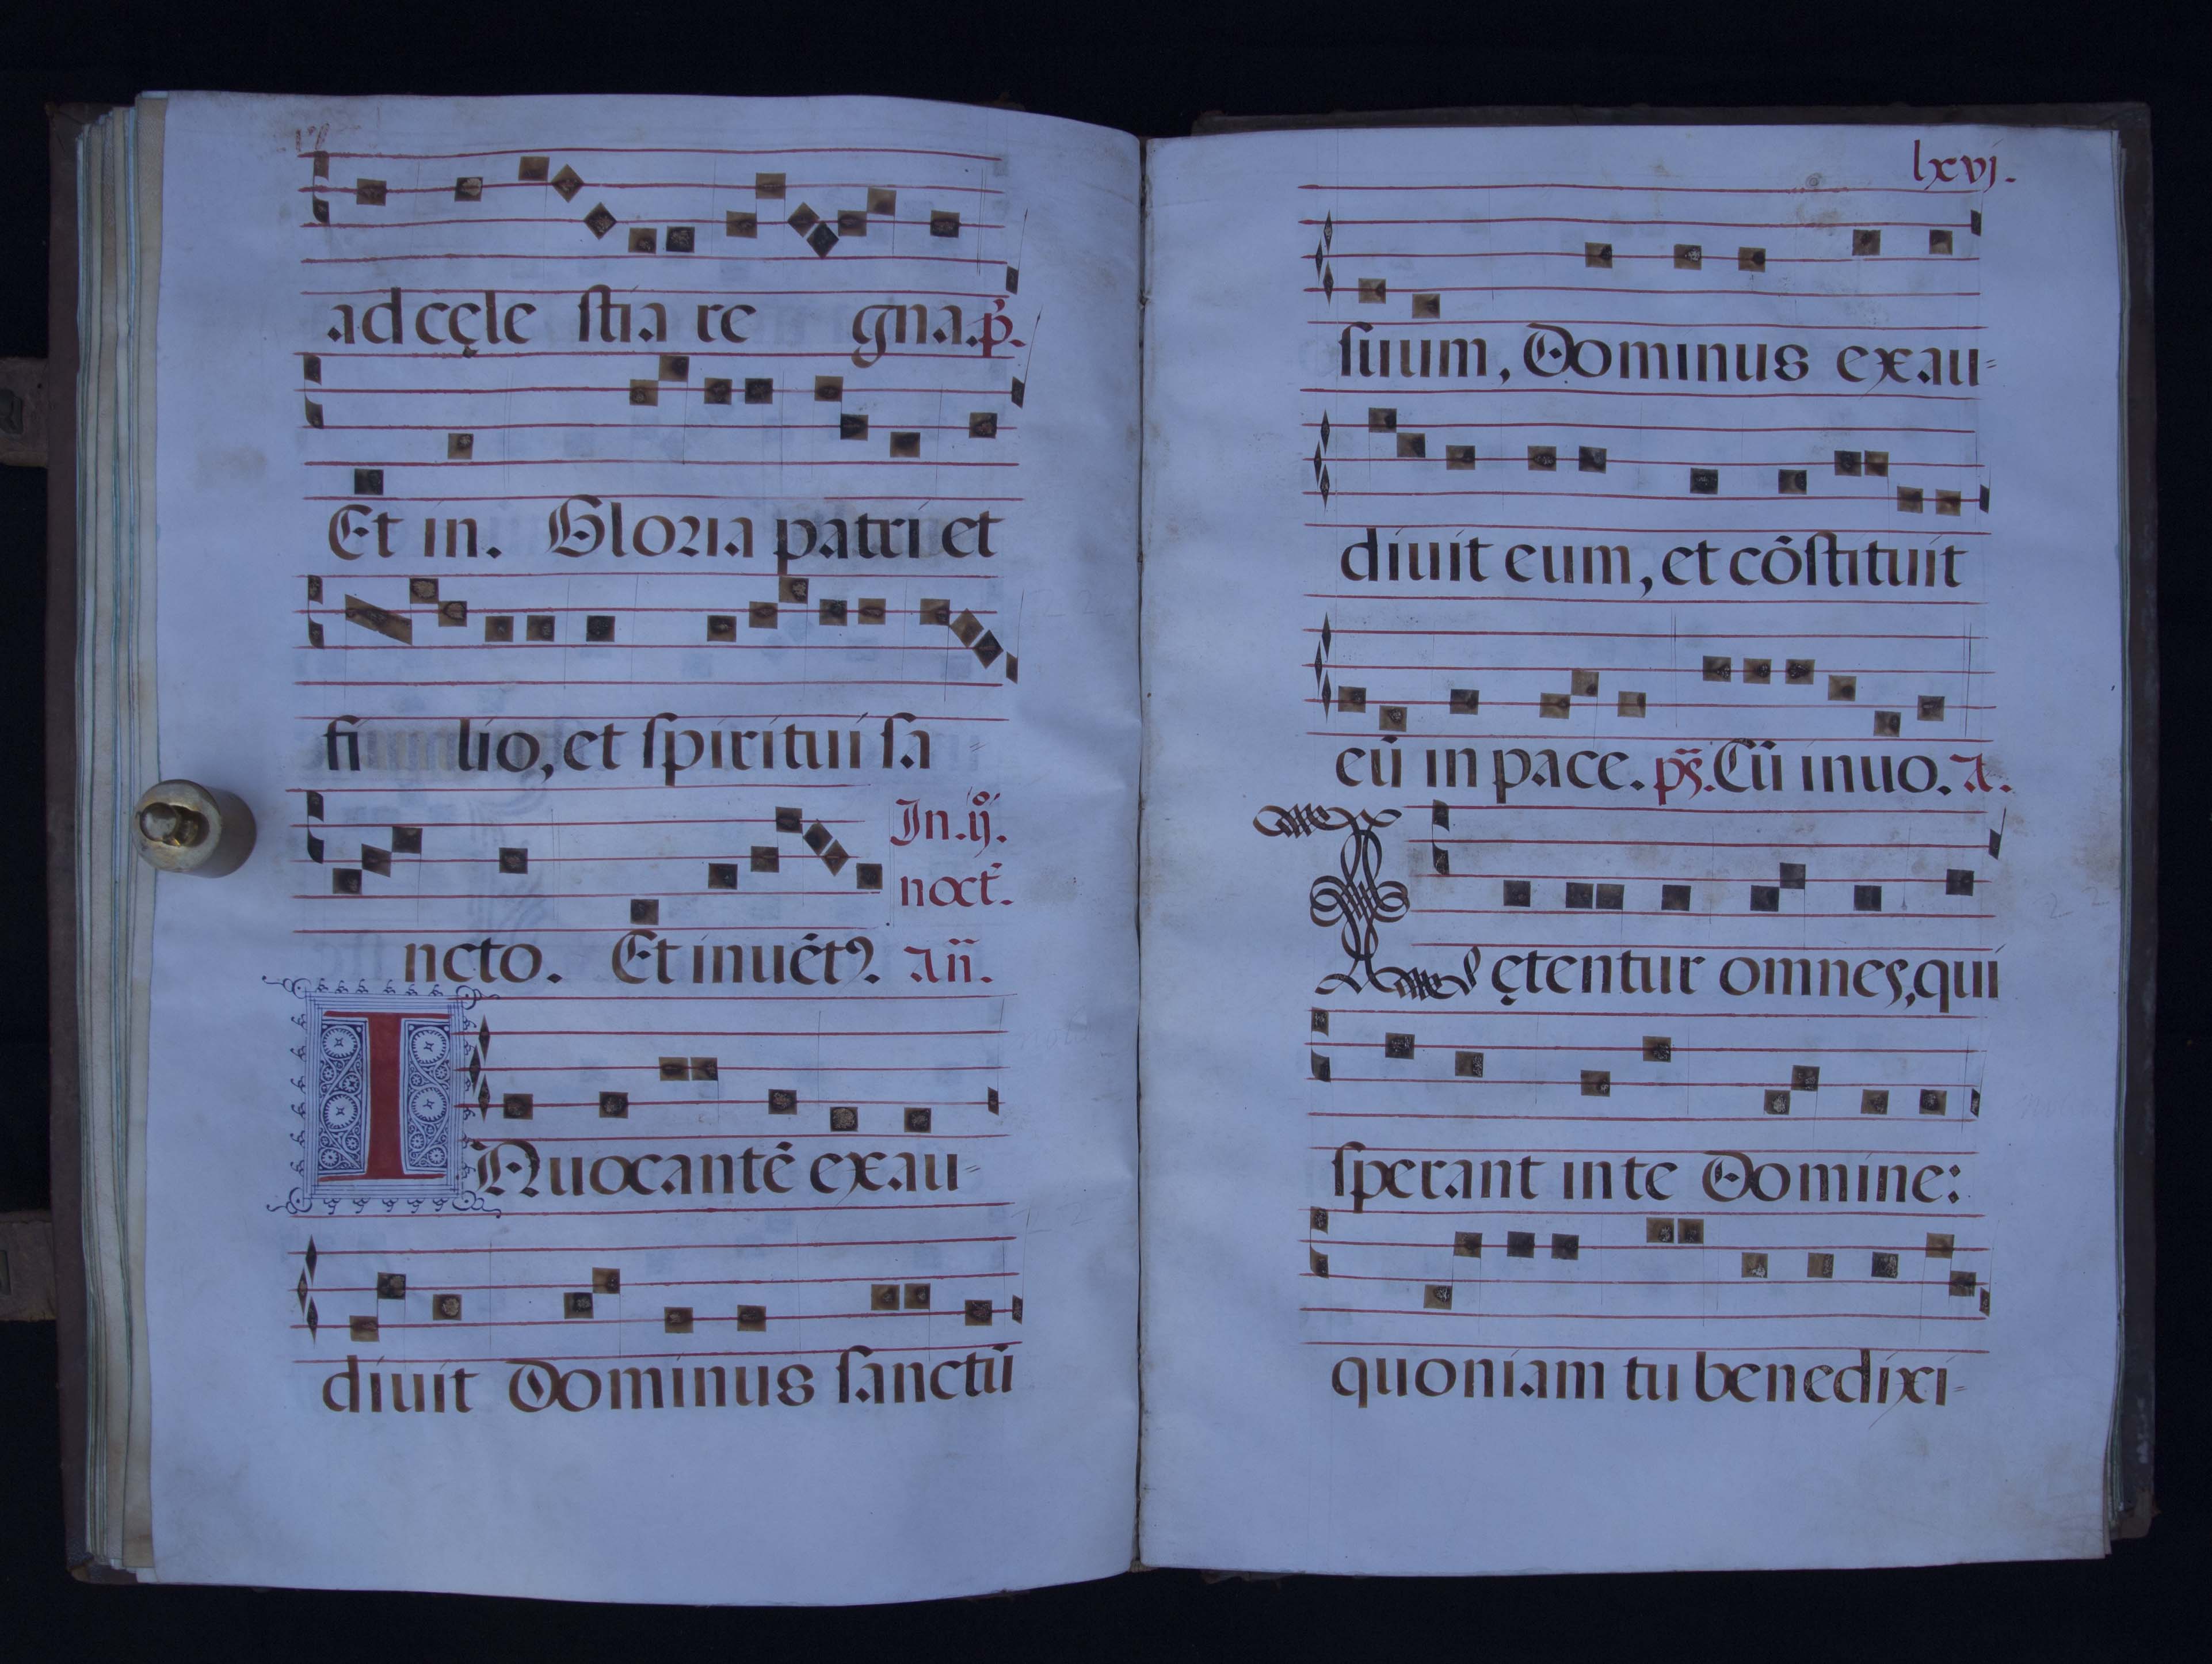 ad cęle stia re gna. p̃.
Et in. Gloria patri et
fi lio, et spiritui sa=
In. ij.
noct̃.
ncto. Et inuēt9. añ.
INuocantē exau=
diuit Dominus sanctū
lxvj.
suum, Dominus exau=
diuit eum, et cōstituit
eū in pace. ps̃. Cū inuo. a.
Lętentur omnes, qui
sperant in te Domine:
quoniam tu benedixi=